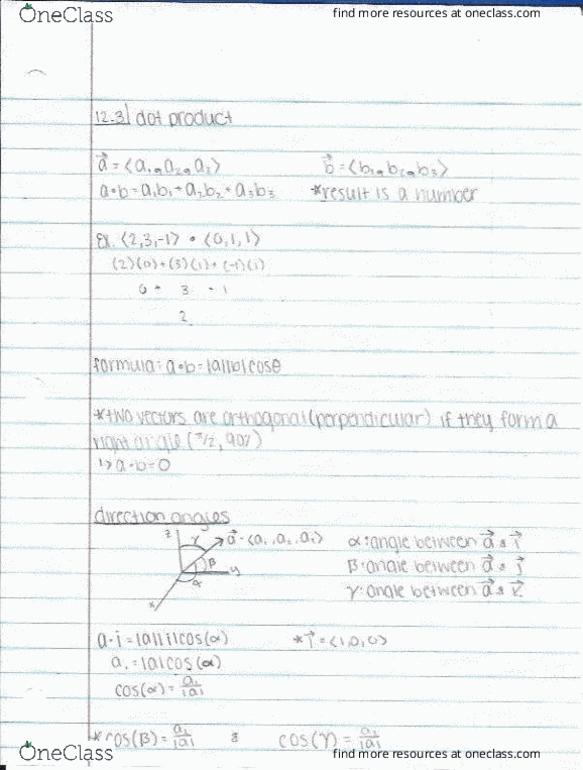 OneClass find more resources at oneclass.com
12.3 dot product
a⃗ = ⟨a₁, a₂, a₃⟩ b⃗ = ⟨b₁, b₂, b₃⟩
a•b = a₁b₁ + a₂b₂ + a₃b₃ *result is a number
Ex. ⟨2,3,-1⟩ • ⟨0,1,1⟩
(2)(0)+(3)(1)+(-1)(1)
0 + 3 - 1
2
formula: a•b = |a||b|cosθ
*two vectors are orthogonal (perpendicular) if they form a
right angle (π/2, 90°)
↳ a•b = 0
direction angles
z γ a⃗ = ⟨a₁, a₂, a₃⟩ α: angle between a⃗ & i⃗
β y β: angle between a⃗ & j⃗
α γ: angle between a⃗ & k⃗
x
a•i = |a||i|cos(α) *i⃗ = ⟨1,0,0⟩
a₁ = |a|cos(α)
cos(α) = a₁/|a|
*cos(β) = a₂/|a| & cos(γ) = a₃/|a|
OneClass find more resources at oneclass.com